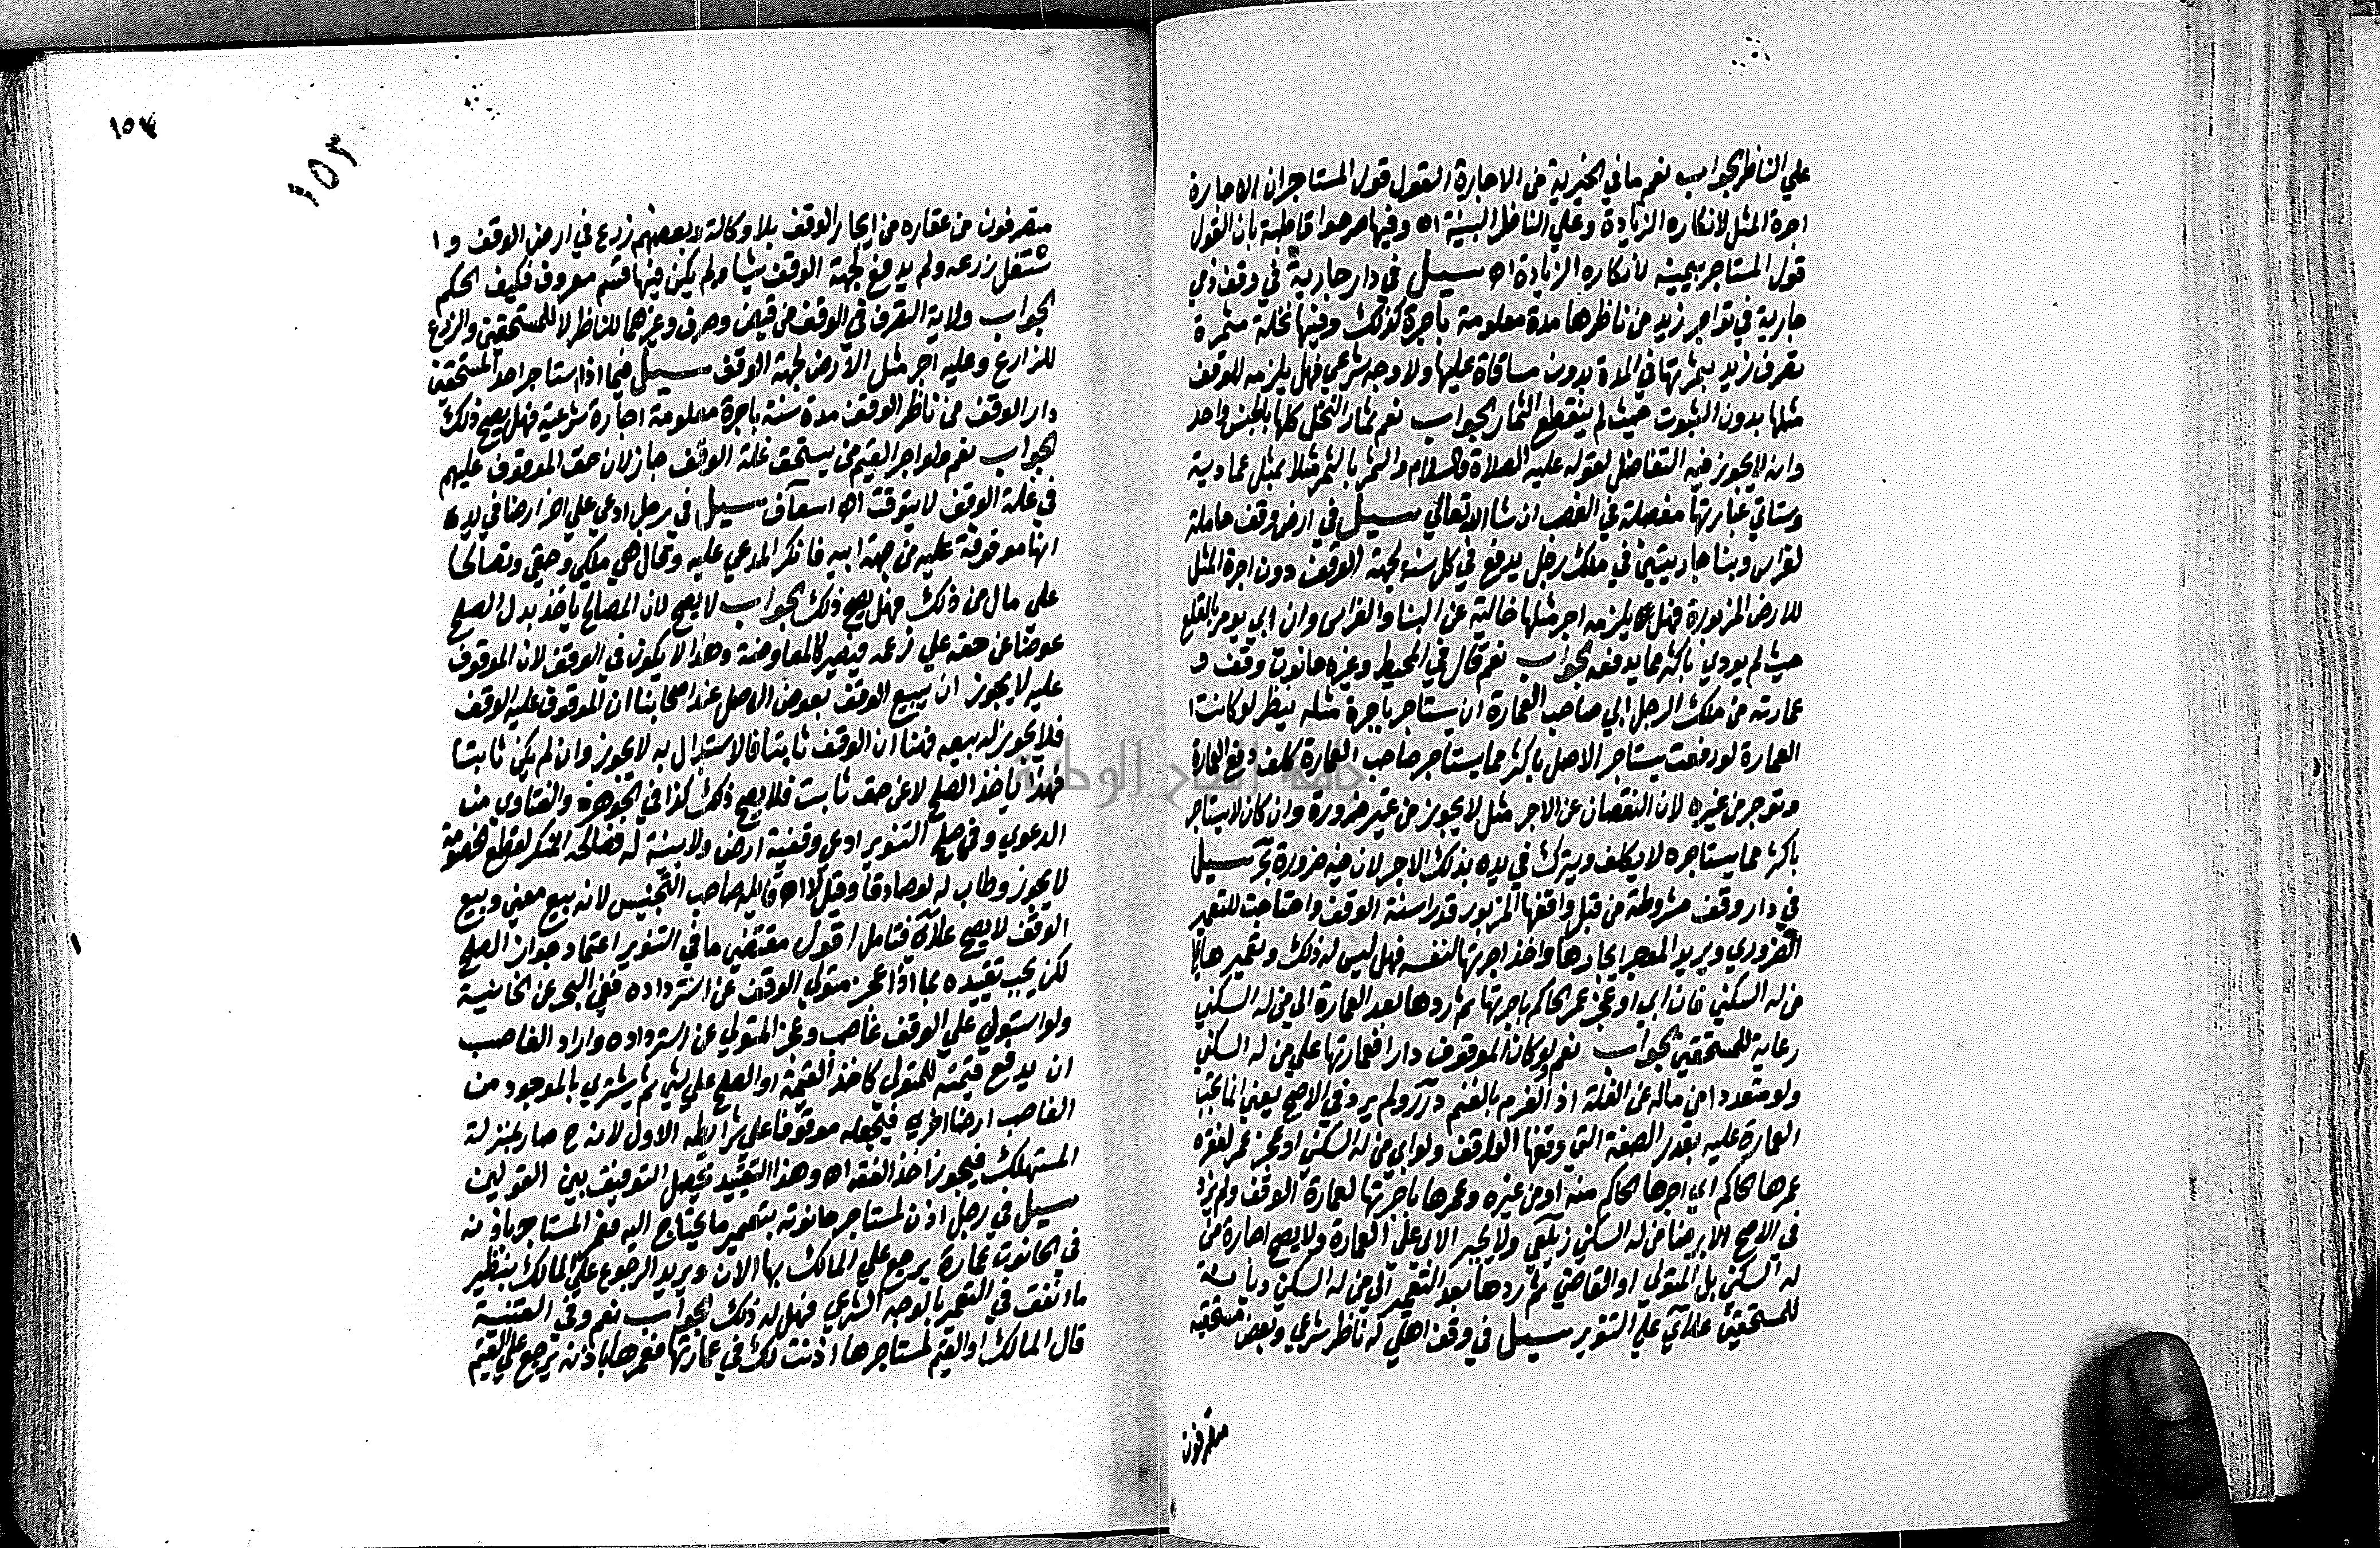 علي الناظر الجواب نعم ما في الخيرية من الاجارة القول قول المستاجر ان الاجارة
اجرة المثل لانكاره الزيادة وعلي الناظر البينة اه وفيها صرحوا قاطبة بان القول
قول المستاجر بيمينه لانكاره الزيادة اه سيل في دار جارية في وقف ذمي
جارية في تواجر زيد من ناظرها مدة معلومة باجرة كذلك وفيها نخلة مثمرة
تصرف زيد بثمرتها في المدة بدون مساقاة عليها ولا وجه شرعي فهل يلزمه للوقف
مثلها بدون الثبوت حيث لم ينقطع الثمار الجواب نعم ثمار النخل كلها بالجنس واحد
وانه لا يجوز فيه التفاضل لقوله عليه الصلاة والسلام والتمر بالتمر مثلا بمثل عمادية
وستاتي عبارتها مفصلة في الغصب ان شا الله تعالي سيل في ارض وقف حاملة
لغراس وبنا جاريتين في ملك رجل يدفع في كل سنة لجهة الوقف دون اجرة المثل
للارض المزبورة فهل يلزمه اجر مثلها خالية عن البنا والغراس وان ابي يومر بالقلع
حيث لم يودي باكثر مما يدفعه الجواب نعم قال في المحيط وغيره حانوت وقف و
عمارته من ملك الرجل ابي صاحب العمارة ان يستاجر باجرة مثله ينظر لو كانت ا
العمارة لو دفعت يستاجر الاصل باكثر مما يستاجر صاحب العمارة كلف دفع العمارة
وتوجر من غيره لان النقصان عن الاجر مثل لا يجوز من غير ضرورة وان كان لا يستاجر
باكثر مما يستاجره لا يكلف ويترك في يده بذلك الاجر لان فيه ضرورة بحر سيل
في دار وقف مشروطة من قبل واقفها المزبور قدرا سنة الوقف واحتاجت للتعمير
الضروري ويريد الموجر ايجارها واخذ اجرتها لنفسه فهل ليس له ذلك وتعميرها علي
من له السكني فان ابي او عجز عمر الحاكم باجرتها ثم ردها بعد العمارة الي من له السكني
رعاية للمستحقين الجواب نعم لو كان الموقوف دارا فعمارتها علي من له السكني
ولو متعددا من ماله عن الغلة اذ الغرم بالغنم درر ولم يرد في الاصح يعني انما تجب
العمارة عليه بقدر الصفة التي وقفها الواقف ولو ابي من له السكني او عجز عمر لفقره
عمرها الحاكم اي اجرها الحاكم منه او من غيره وعمرها باجرتها لعمارة الوقف ولم يزد
في الاصح الا برضا من له السكني زيلعي ولا يجبر الابي علي العمارة ولا يصح اجارة من
له السكني بل المتولي او القاضي ثم ردها بعد التعمير الي من له السكني رعاية
للمستحقين علائي علي التنوير سيل في وقف اهلي له ناظر شرعي وبعض مستحقيه
متصرفون
١٥٣
متصرفون من عقاره من ايجار الوقف بلا وكالة وبعضهم زرع في ارض الوقف و ا
شتغل زرعه ولم يدفع لجهة الوقف شيا ولم يكن فيها قسم معروف فكيف الحكم
الجواب ولاية التصرف في الوقف من قبض وصرف وغيرهما للناظر لا للمستحقين والزرع
للزارع وعليه اجر مثل الارض لجهة الوقف سيل فيما اذا استاجر احد المستحقين
دار الوقف من ناظر الوقف مدة سنة باجرة معلومة اجارة شرعية فهل يصح ذلك
الجواب نعم ولو اجر القيم من يستحق غلة الوقف جاز لان حق الموقوف عليهم
في غلة الوقف لا بتوقت اه اسعاف سيل في رجل ادعي علي اخر ارضا في يده
انها موقوفة عليه من جهة ابيه فانكر المدعي عليه وقال هي ملكي وحقي وتصالحا
علي مال من ذلك فهل يصح ذلك الجواب لا يصح لان المصالح ياخذ بدل الصلح
عوضا عن حقه علي زعمه فيصير كالمعاوضة وهذا لا يكون في الوقف لان الموقوف
عليه لا يجوز ان يبيع الوقف بعوض الاصل عند اصحابنا ان الموقوف عليه الوقف
فلا يجوز له بيعه فهنا ان الوقف ثابتا فالاستبدال به لا يجوز وان لم يكن ثابتا
فهذا ياخذ الصلح لا عن حق ثابت فلا يصح ذلك كذا في الجوهرة والفتاوي من
الدعوي وفي صلح التنوير ادعي وقفية ارض ولا بينة له فصالحه المنكر لقطع الخصومة
لا يجوز وطاب له لو صادقا وقيل لا اه قايله صاحب التجنيس لانه بيع معني وبيع
الوقف لا يصح علائي فتامل اقول مقتضي ما في التنوير اعتماد جواز الصلح
لكن يجب تقييده بما اذا عجز متولي الوقف عن استرداده ففي البحر عن الخانية
ولو استولي علي الوقف غاصب وعجز المتولي عن استرداده واراد الغاصب
ان يدفع قيمته للمتولي كاخذ القيمة او الصلح علي شي ثم يشتري بالموجود من
الغاصب ارضا اخري فيجعله موقوفا علي شرايطه الاول لانه ح صار بمنزلة
المستهلك فيجوز اخذ الفقه اه وهذا التقييد يحصل التوفيق بين القولين
سيل في رجل اذن لمستاجر حانوته بتعمير ما يحتاج اليه فعمر المستاجر باذنه
في الحانوت عمارة يرجع علي المالك بها الان ويريد الرجوع علي المالك بنظير
ما انفق في التعمير بالوجه الشرعي فهل له ذلك الجواب نعم وفي القنية
قال المالك او القيم لمستاجرها اذنت لك في عمارتها فعمرها باذنه يرجع علي القيم